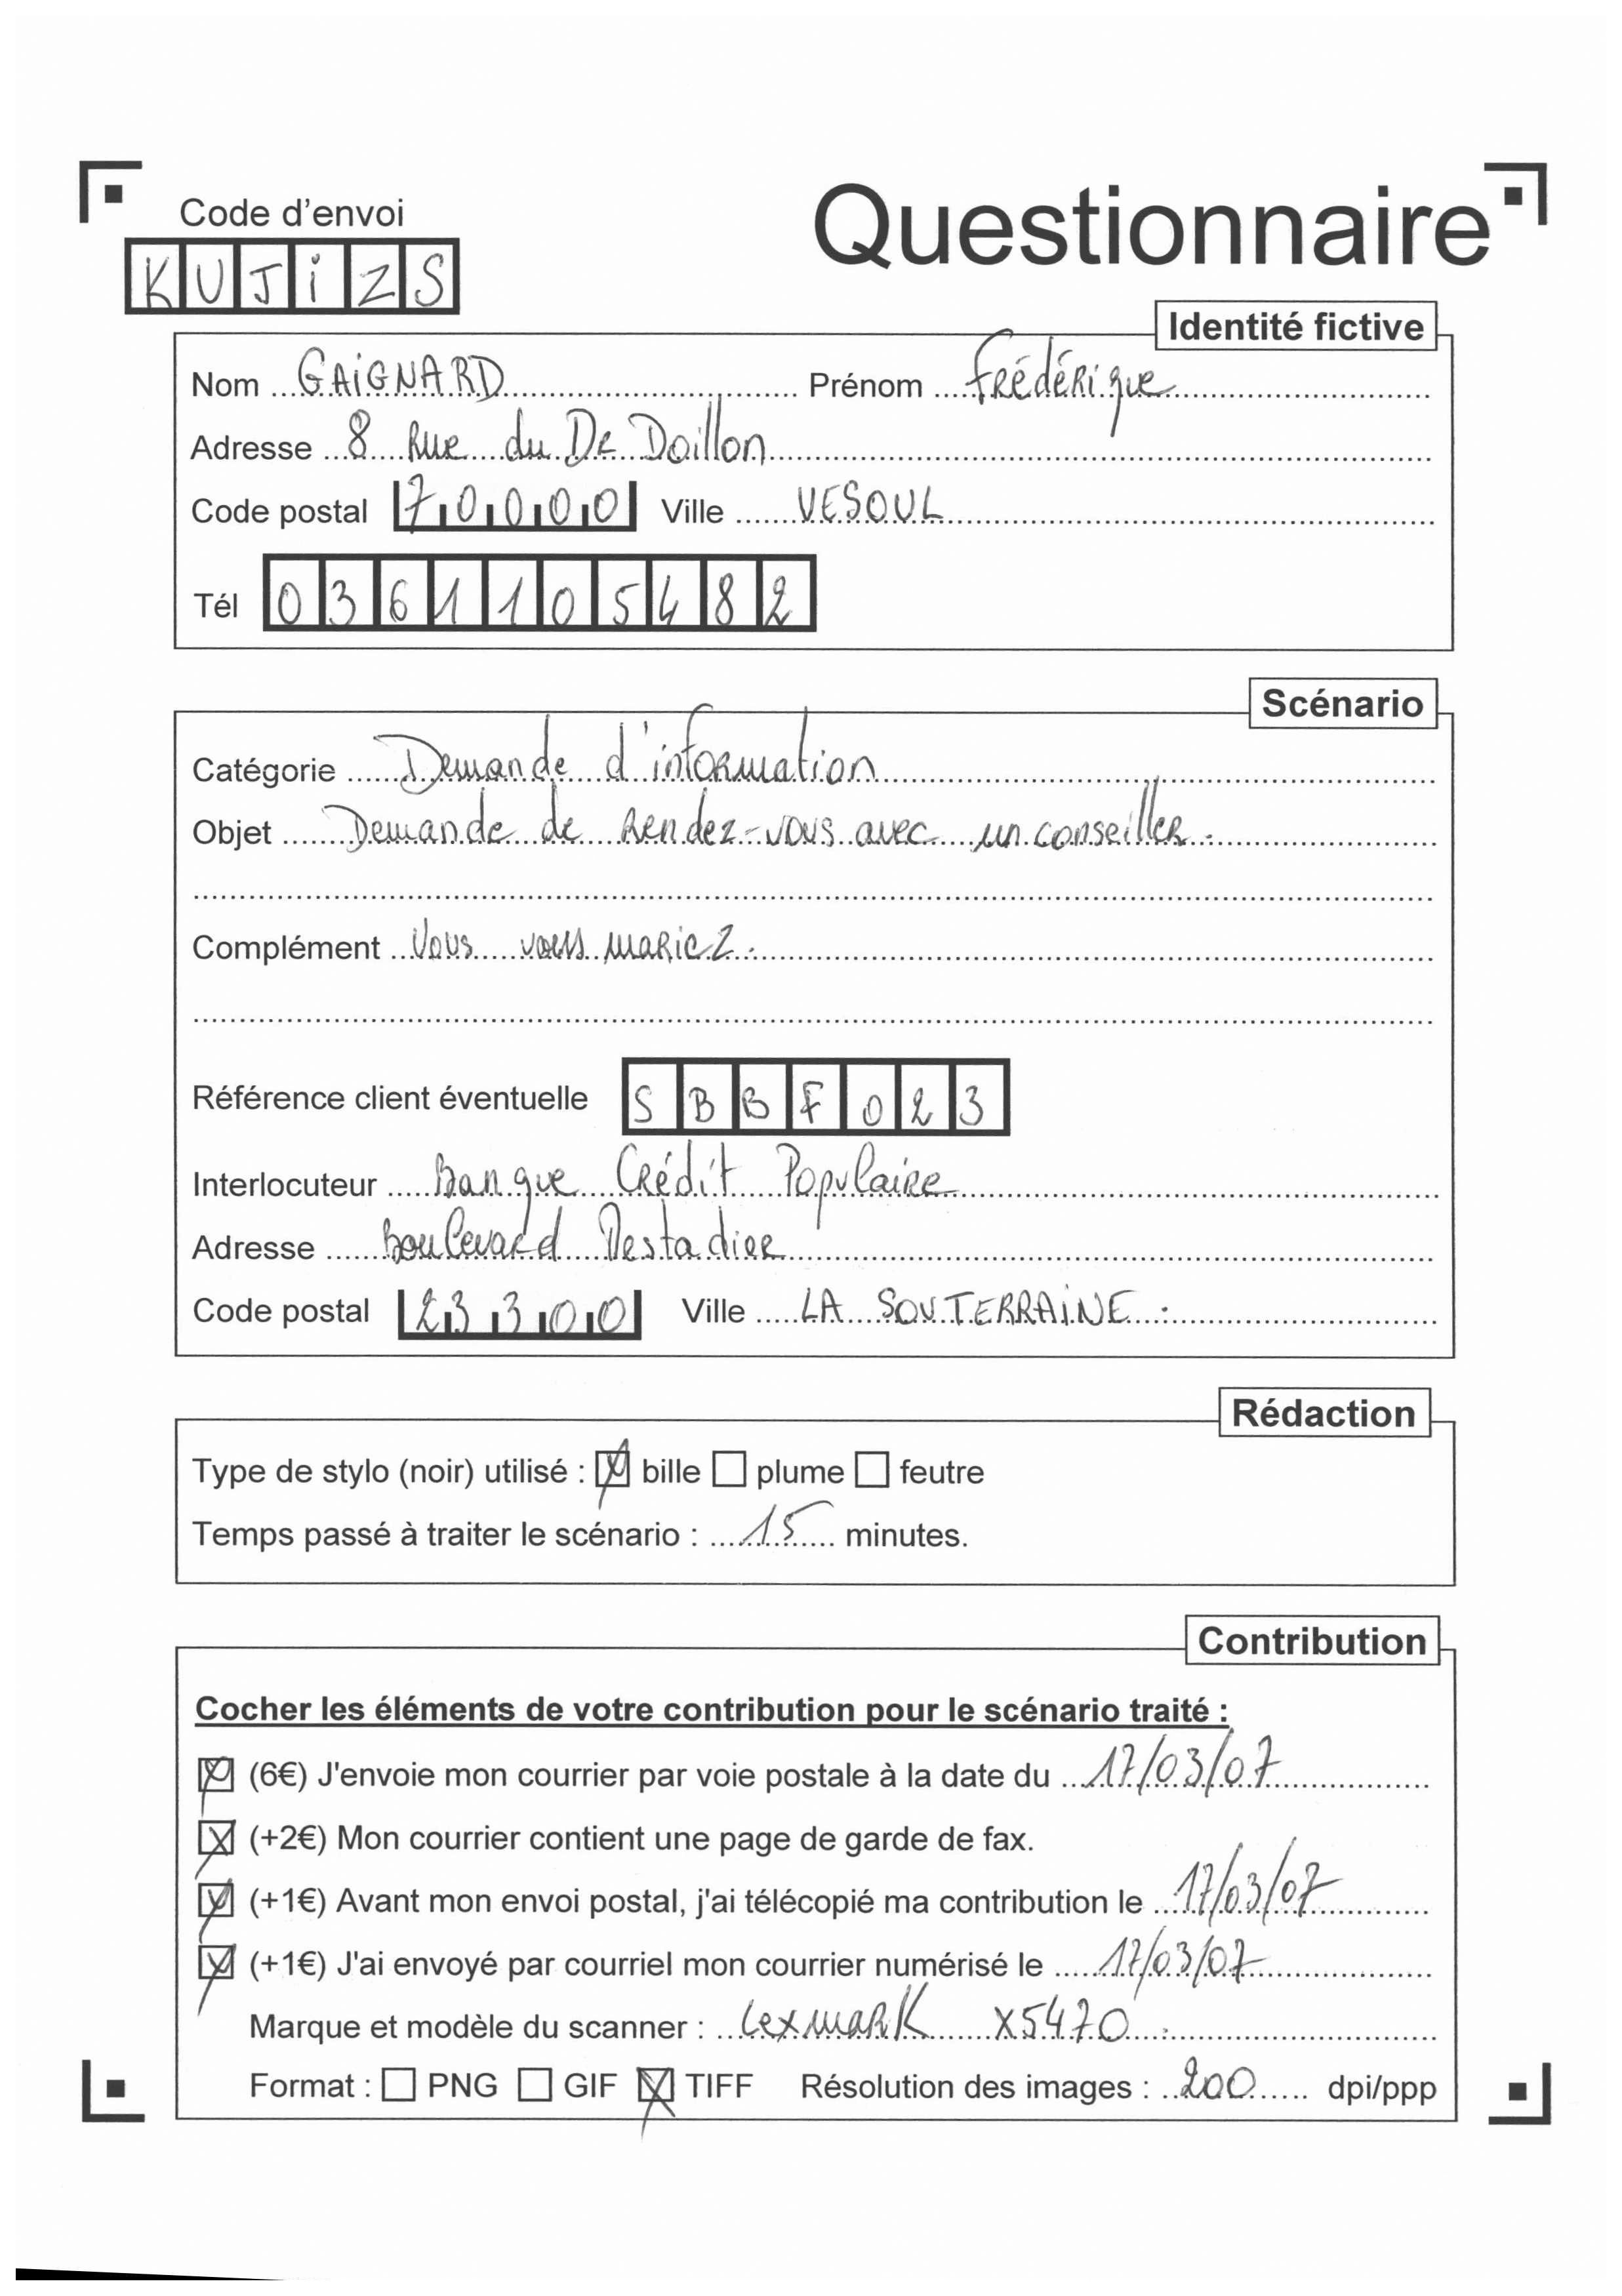 Questionnaire
Code d'envoi
KUJiZS
Identité fictive
Nom GAiGNARD Prénom Frédérique
Adresse 8 Rue du Dr Doillon
Code postal 70000 Ville VESOUL
Tél 0361105482
Scénario
Catégorie Demande d'information
Objet Demande de Rendez-vous avec un conseiller.
Complément Vous vous mariez.
Référence client éventuelle SBBF023
Interlocuteur Banque Crédit Populaire
Adresse Boulevard
Code postal 23300 Ville LA SOUTERRAiNE.
Rédaction
Type de stylo (noir) utilisé : bille plume feutre
Temps passé à traiter le scénario : 15 minutes.
Contribution
Cocher les éléments de votre contribution pour le scénario traité :
(6€) J'envoie mon courrier par voie postale à la date du 17/03/07
(+2€) Mon courrier contient une page de garde de fax.
(+1€) Avant mon envoi postal, j'ai télécopié ma contribution le 17/03/07
(+1€) J'ai envoyé par courriel mon courrier numérisé le 17/03/07
Marque et modèle du scanner : Lexmark X5470
Format : PNG GIF TIFF Résolution des images : 200 dpi/ppp